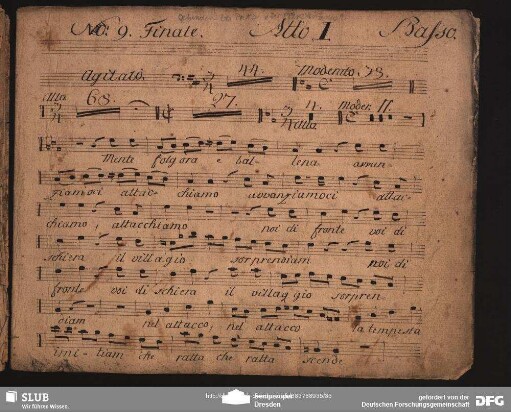 No. 9. Finale. Atto I Basso.
Agitato. 44. Moderato. 38.
Alla 68. 27. 4. Alla Moder. 11.
Mente folgora e bal- lena avan-
ziamoci attac- chiamo avanziamoci attac-
chiamo, attacchiamo noi di fronte voi di
schiera il villagio sorprendiam noi di
fronte voi di schiera il villaggio sorpren-
ciam nel attacco, nel attacco la tempesta
imi- tiam che ratta che ratta scende
SLUB
Wir führen Wissen.
Dresden
gefördert von der
Deutschen Forschungsgemeinschaft
DFG